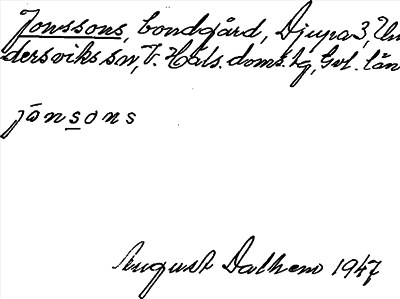 Jonssons, bondgård, Djupa 3, Un
dersviks sn, V. Häls. doms. tg, Gvl. län
jȧnsons
August Dalhem 1947